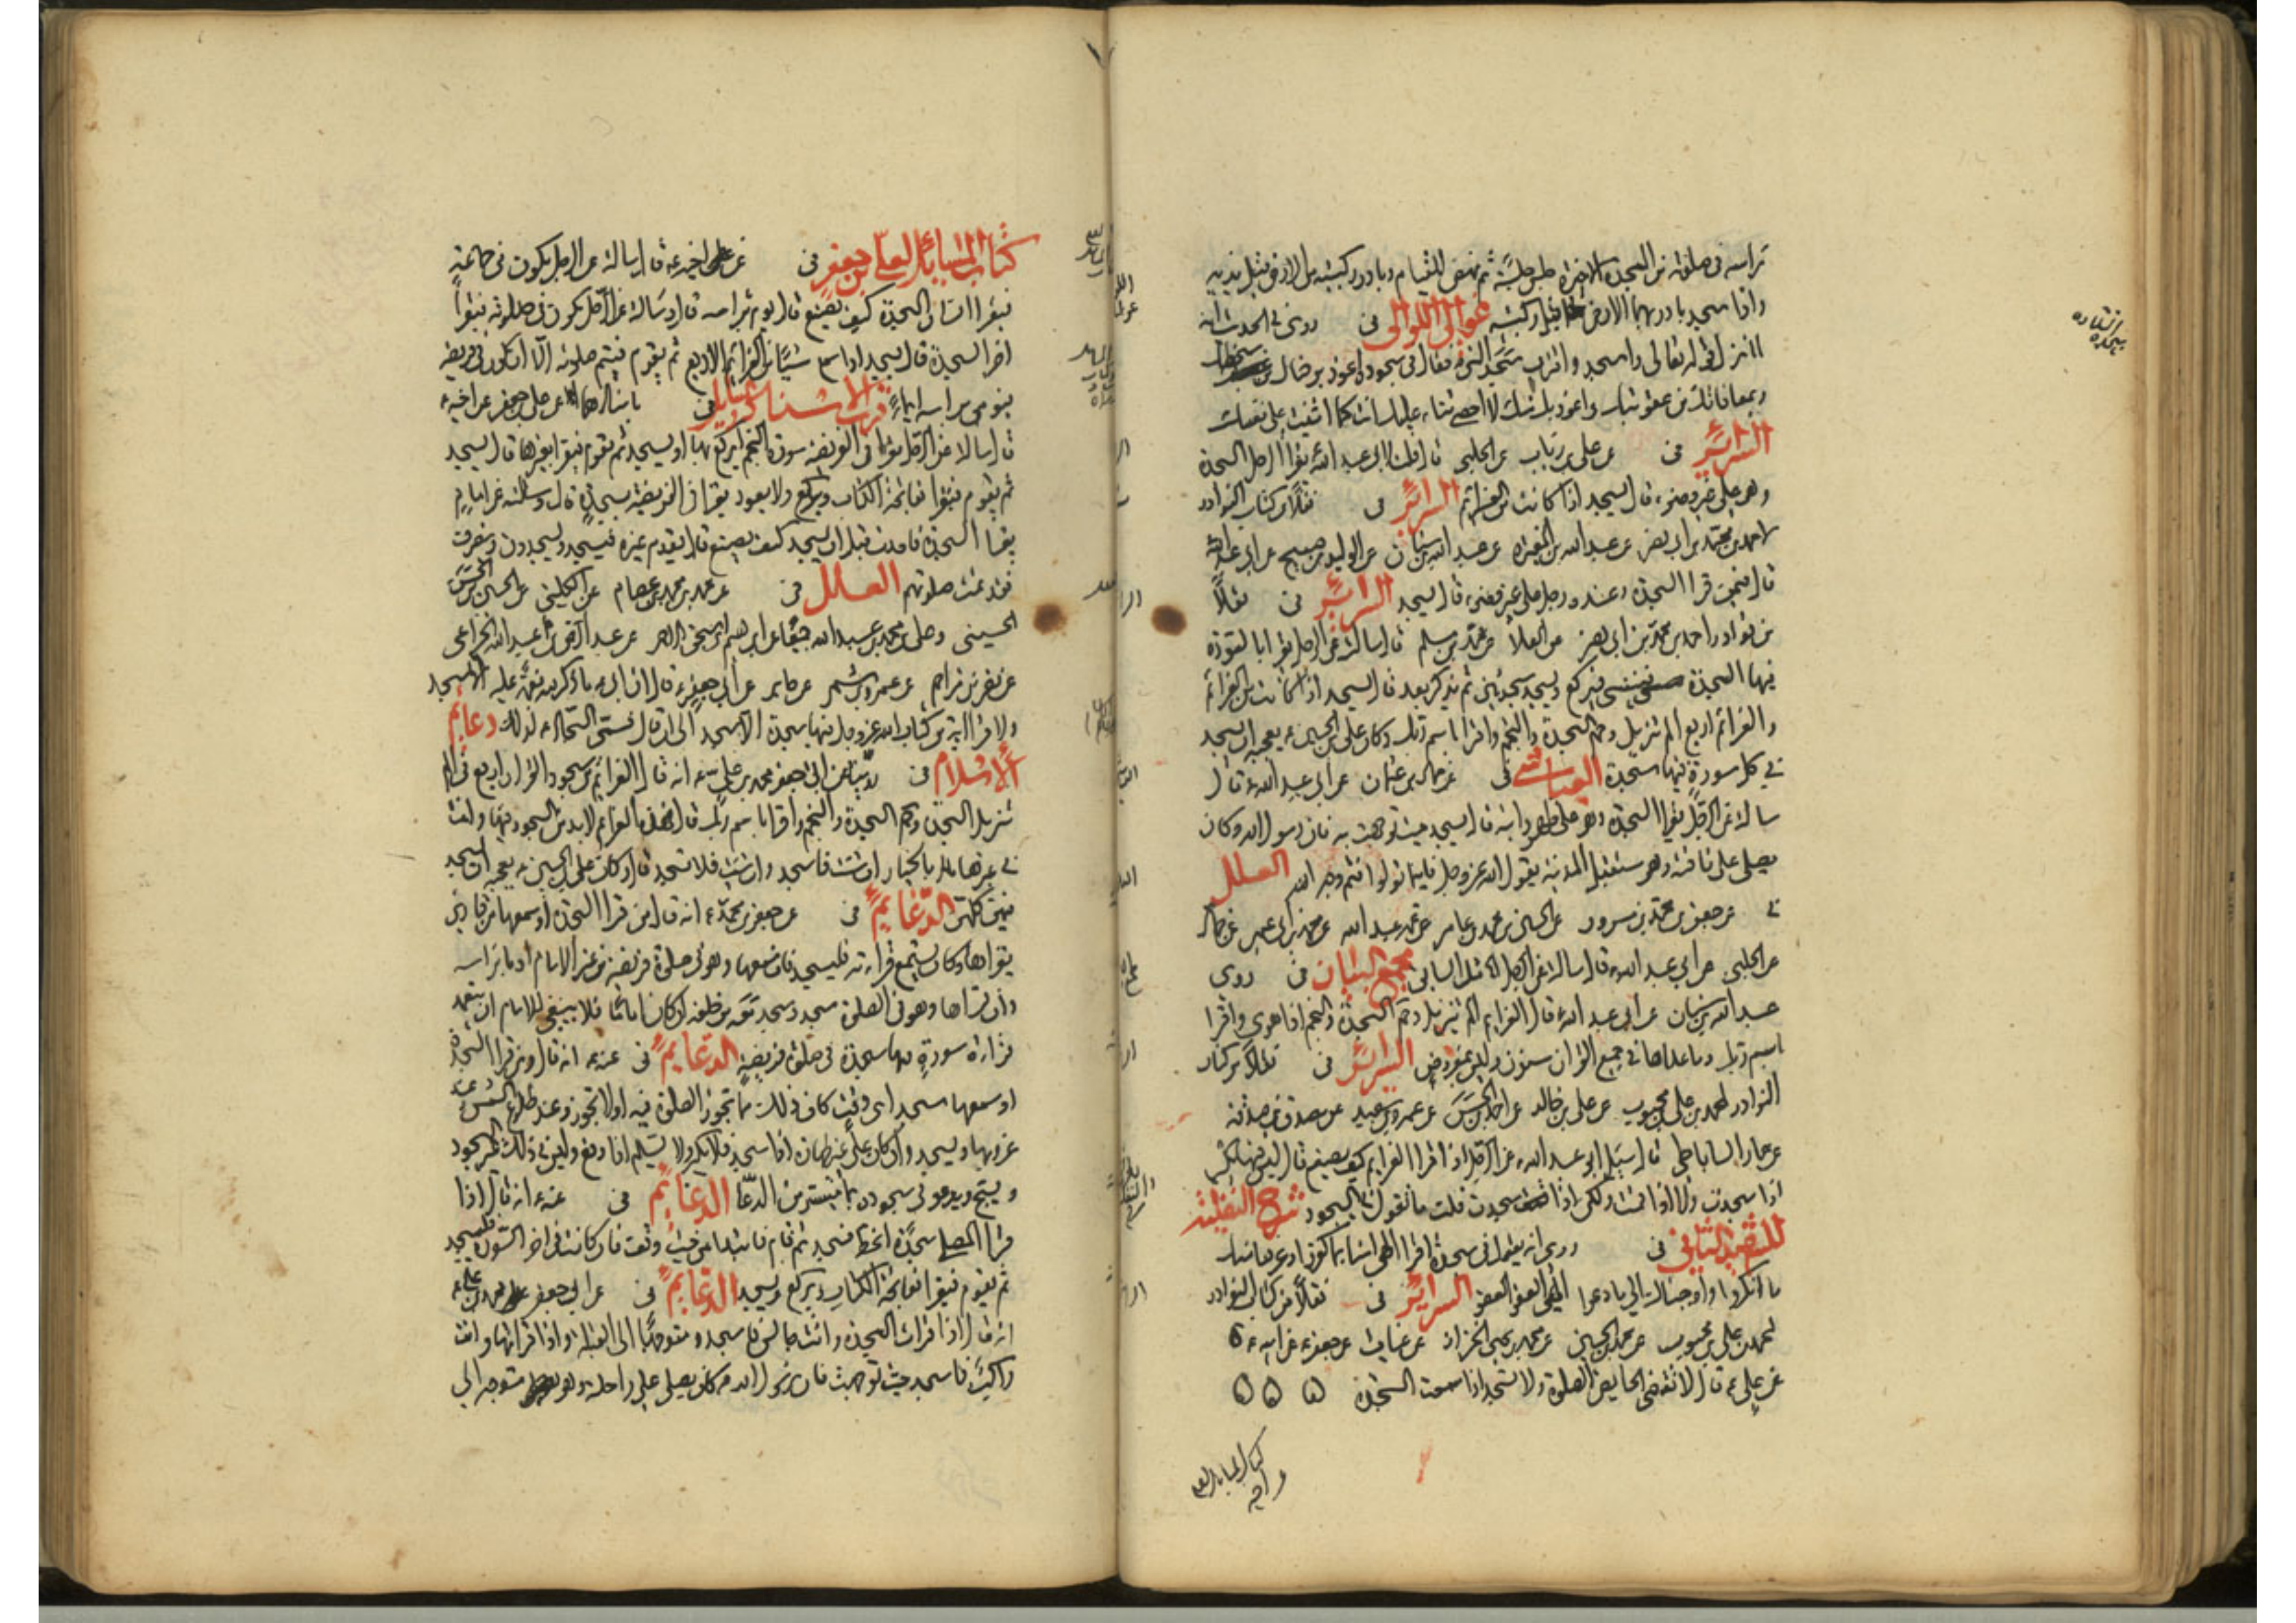 من السجدة الاخيرة جلس جلسة ثم نهض للقيام وبادر بركبتيه من الارض قبل يديه
واذا سجد بادر بهما الارض قبل ركبتيه غوالي اللوالي فى روى فى الحديث انه
لما نزل قوله تعالى واسجد واقترب سجد النبى فقال فى سجوده اعوذ برضاك من سخطك
وبمعافاتك من عقوبتك واعوذ بك منك لا احصى ثناء عليك انت كما اثنيت على نفسك
السرائر فى عن على بن رئاب عن الحلبى قال قلت لابى عبد الله يقرأ الرجل السجدة
وهو على غير وضوء قال يسجد اذا كانت من العزائم السرائر فى نقلا من كتاب النوادر
لاحمد بن محمد بن ابى نصر عن عبد الله بن المغيرة عن عبد الله بن سنان عن الوليد بن صبيح عن ابى عبد الله
قال فيمن قرا السجدة وعنده رجل على غير وضوء قال يسجد السرائر فى نقلا
من نوادر احمد بن محمد بن ابى نصر عن العلا عن محمد بن مسلم قال سالته عن الرجل يقرا بالسورة
فيها السجدة فيركع ويسجد سجدتين ثم يذكر بعد قال يسجد اذا كانت من العزائم
والعزائم اربع الم تنزيل وحم السجدة والنجم واقرا باسم ربك وكان على بن الحسين يعجبه ان يسجد
فى كل سورة فيها سجدة العياشى فى عن حماد بن عثمان عن ابى عبد الله قال
سالته عن الرجل يقرا السجدة وهو على ظهر دابته قال يسجد حيث توجهت به فان رسول الله كان
يصلى على ناقته وهو مستقبل المدينة يقول الله عز وجل فاينما تولوا فثم وجه الله العلل
فى عن جعفر بن محمد بن مسرور عن الحسين بن محمد بن عامر عن عمه عبد الله عن محمد بن ابى عمير عن حماد
عن الحلبى عن ابى عبد الله قال سالته عن الرجل مجمع البيان فى روى
عبد الله بن سنان عن ابى عبد الله قال العزايم الم تنزيل وحم السجدة والنجم اذا هوى واقرا
باسم ربك وما عداها فى جميع القران مسنون وليس بمفروض السرائر فى نقلا من كتاب
النوادر لمحمد بن على بن محبوب عن على بن خالد عن احمد بن الحسن عن عمرو بن سعيد عن مصدق بن صدقة
عن عمار الساباطى قال سئل ابو عبد الله عن الرجل اذا قرا العزايم كيف يصنع قال ليس فيها تكبير
اذا سجدت ولا اذا قمت ولكن اذا سجدت قلت ما تقول فى السجود شرح النفلية
للشهيد الثانى فى روى انه يقول فى سجدة اقرا الهى امنا بما كفروا وعرفنا منك
ما انكروا واجبناك الى ما دعوا الهى العفو العفو السرائر فى نقلا من كتاب النوادر
لمحمد بن على بن محبوب عن محمد بن الحسين عن محمد بن يحيى الخزاز عن غياث عن جعفر عن ابيه
عن على قال لا تقضى الحايض الصلوة ولا تسجد اذا سمعت السجدة
كتاب المسائل لعلى بن جعفر فى عن اخيه قال سالته عن الرجل يكون فى جماعة
فيقرا انسان السجدة كيف يصنع قال يومى براسه قال وسالته عن الرجل يكون فى صلوته فيقرا
اخر السجدة قال يسجد اذا سمع شيئا من العزائم الاربع ثم يقوم فيتم صلوته الا ان يكون فى فريضة
فيومى براسه ايماء قرب الاسناد فى عن على بن جعفر عن اخيه
قال سالته عن الرجل يقرا فى الفريضة سورة النجم ايركع بها او يسجد ثم يقوم فيقرا بغيرها قال يسجد
ثم يقوم فيقرا بفاتحة الكتاب ويركع ولا يعود يقرا فى الفريضة بسجدة قال وسالته عن امام
يقرا السجدة فاحدث قبل ان يسجد كيف يصنع قال يقدم غيره فيسجد ويسجدون وينصرف
فقد تمت صلوتهم العلل فى عن محمد بن محمد بن عصام عن الكلينى عن الحسين بن الحسن
الحسينى وعلى بن محمد بن عبد الله جميعا عن ابرهيم بن اسحق الاحمر عن عبد الرحمن بن عبد الله الخزاعى
عن نصر بن مزاحم عن عمرو بن شمر عن جابر عن ابى جعفر قال ان ابى ما ذكر لله نعمة عليه الا سجد
ولا قرا اية من كتاب الله عز وجل فيها سجدة الا سجد الى ان قال فسمى السجاد لذلك دعائم
الاسلام فى روينا عن ابى جعفر محمد بن على انه قال العزائم من سجود القران اربع فى الم
تنزيل السجدة وحم السجدة والنجم واقرا باسم ربك قال فهذه العزائم لا بد من السجود فيها وانت
فى غيرها بالخيار ان شئت فاسجد وان شئت فلا تسجد قال وكان على بن الحسين يعجبه ان يسجد
فيهن كلهن الدعايم فى عن جعفر بن محمد انه قال من قرا السجدة او سمعها من قارئ
يقراها وكان يستمع قراءته فليسجد فان سمعها وهو فى صلوة فريضة من غير الامام اومأ براسه
وان قراها وهو فى الصلوة سجد وسجد معه من خلفه ان كان اماما فلا ينبغى للامام ان يتعمد
قراءة سورة فيها سجدة فى صلوة فريضة الدعايم فى عنه انه قال ومن قرا السجدة
او سمعها سجد اى وقت كان ذلك مما تجوز الصلوة فيه او لا تجوز وعند طلوع الشمس وعند
غروبها ويسجد وان كان على غير طهارة اذا سجد فلا يكبر ولا يسلم اذا رفع وليس فى ذلك غير السجود
ويسبح ويدعو فى سجوده بما تيسر من الدعا الدعائم فى عنه انه قال اذا
قرا المصلى سجدة انحط فسجد ثم قام فابتدا من حيث وقف فان كانت فى اخر السورة فليسجد
ثم يقوم فيقرا بفاتحة الكتاب ويركع ويسجد الدعايم فى عن ابى جعفر محمد بن على
انه قال اذا قرات السجدة وانت جالس فاسجد متوجها الى القبلة واذا قراتها وانت
راكب فاسجد حيث توجهت فان رسول الله كان يصلى على راحلته وهو متوجه الى